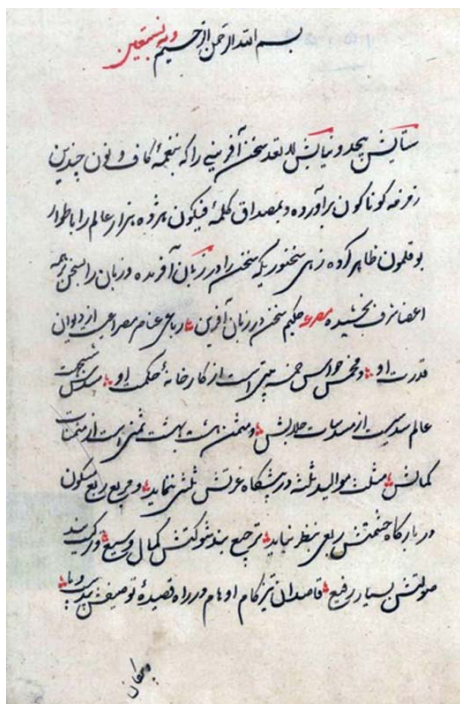 بسم الله الرحمن الرحیم وبه نستعین
ستایش بیحد و نیایش لا یعد سخن آفرینی را که بنغمهٔ کاف و نون چندین
زمزمه گوناگون برآورده و بمصداق کلمهٔ فیکون هژده هزار عالم را باطوار
بوقلمون ظاهر کرده زهی سخنوریکه سخن را در زبان آفریده و زبان را بسخن بر همه
اعضا شرف بخشیده مصرعه حکیم سخن در زبان آفرین رباعی عناصر مصراعی از دیوان
قدرت او و مخمس حواس خمسه بیتی است از کارخانهٔ حکمت او مسدس ششجهت
عالم سدسیست از مسدسات جلالش و مثمن هشت بهشت ثمنی است از مثمنات
کمالش مثلث موالید ثلثه در پیشگاه عزتش ثلثی ننماید و مربع ربع مسکون
در بارگاه حشمتش ربعی بنظر نیاید ترجیع بند شوکتش بکمال وسیع و ترکیب بند
صولتش بسیار رفیع قاصدان تیزگام اوهام در راه قصیدهٔ توصیفش